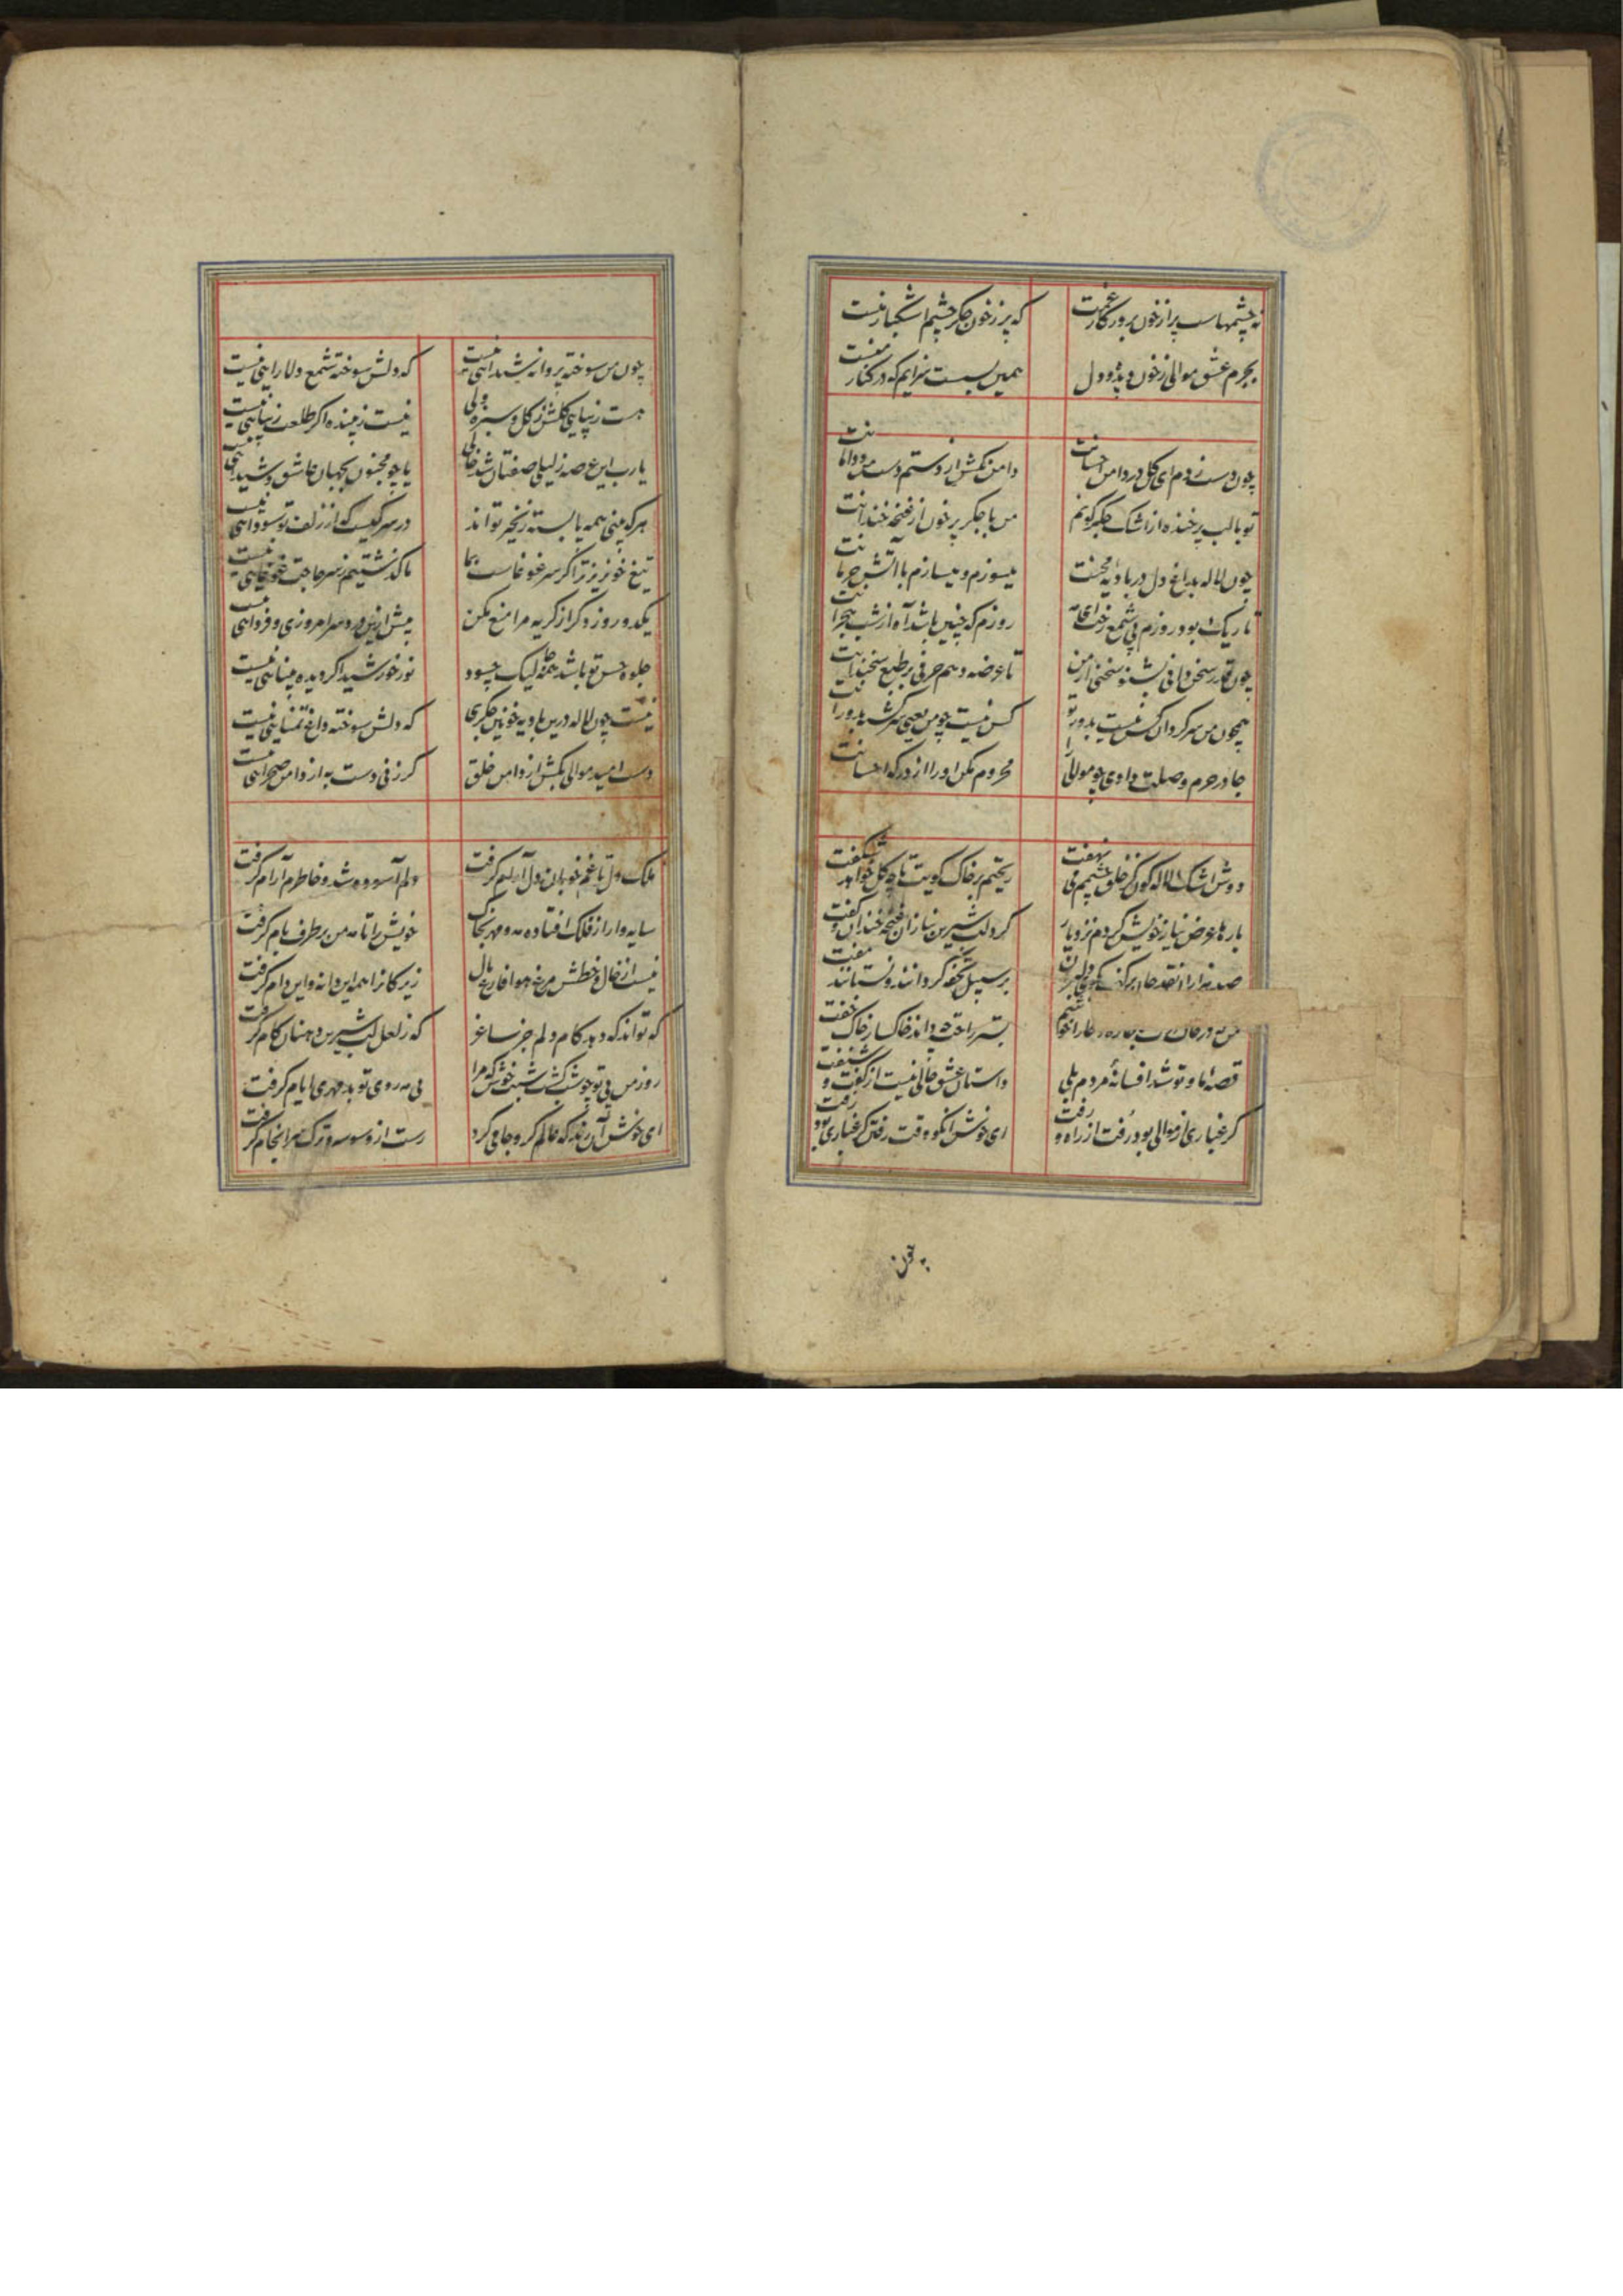 نه چشمهاست پر از خون بروزگار غمت
که پر ز خون جگر چشم اشکبار منست
بجرم عشق موالی ز خون دیده و دل
همین بسست سزایم که در کنار منست
چون دست زدم ای گل در دامن احسانت
دامن مکش از دستم دست من و دامانت
تو با لب پر خنده از اشک جگر گونم
من با جگر پر خون از غنچه خندانت
چون لاله بداغ دل در بادیه محنت
میسوزم و میسازم با آتش حرمانت
تاریک بود روزم بی شمع رخت ای مه
روزم که چنین باشد آه از شب هجرانت
چون قدر سخن دانی بشنو سخنی از من
تا عرضه دهم حرفی بر طبع سخندانت
همچون من سرگردان کس نیست بدور تو
کس نیست چو من یعنی سرگشته بدورانت
جا در حرم وصلت دادی چو موالی را
محروم مکن او را از درگه احسانت
دوش اشک لاله گون کز خلق چشمم می نهفت
ریختم بر خاک کویت تا چه گل خواهد شکفت
بارها عرض نیاز خویش کردم نزد یار
کرد لب شیرین بناز آن غنچه خندان و گفت
صد هزاران نقد جان بر کف بکوی دلبران
بر سبیل تحفه گردانند و نستانند مفت
بستر راحت چه داند خاکسار خاک خفت
قصه ما و تو شد افسانه مردم بلی
داستان عشق خالی نیست از گفت و شنفت
گر غباری از موالی بود رفت از راه و رفت
ای خوش آنکو وقت رفتن گر غباری بود رفت
چون من سوخته پروانه شیدائی نیست
که دلش سوخته شمع دلارایی نیست
هست زیبایی گلشن ز گل و سبزه ولی
نیست زیبنده اگر طلعت زیبایی نیست
یارب این عرصه ز لیلی صفتان شد خالی
یا چو مجنون بجهان عاشق و شیدائی نیست
هر که بینی همه پا بسته زنجیر تو اند
در سر کیست که از زلف تو سودائی نیست
تیغ خونریز ترا گر سر غوغاست بما
ما گذشتیم ز سر حاجت غوغایی نیست
یکدو روز دگر از گریه مرا منع مکن
بیش ازین درد سر امروزی و فردائی نیست
جلوه حسن تو باشد همه جا لیک چسود
نور خورشید اگر دیده بینائی نیست
نیست چون لاله درین بادیه خونین جگری
که دلش سوخته داغ تمنایی نیست
دست امید موالی بکش از دامن خلق
گر زنی دست به از دامن صحرائی نیست
ملک دل تا غم خوبان دل آرام گرفت
دلم آسوده شد و خاطرم آرام گرفت
سایه وار از فلک افتاده مه و مهر بخاک
خویش را تا مه من بر طرف بام گرفت
نیست از خال و خطش مرغ هوا فارغ بال
زیرکانرا همه این دانه و این دام گرفت
که تواند که دهد کام دلم جز ساغر
که ز لعل لب شیرین دهنان کام گرفت
روز من بی تو چو شب گشت شبت خوش که مرا
بی مه روی تو بد مهری ایام گرفت
ای خوش آن رند که عالم گرو جامی کرد
رست از وسوسه و ترک سرانجام گرفت